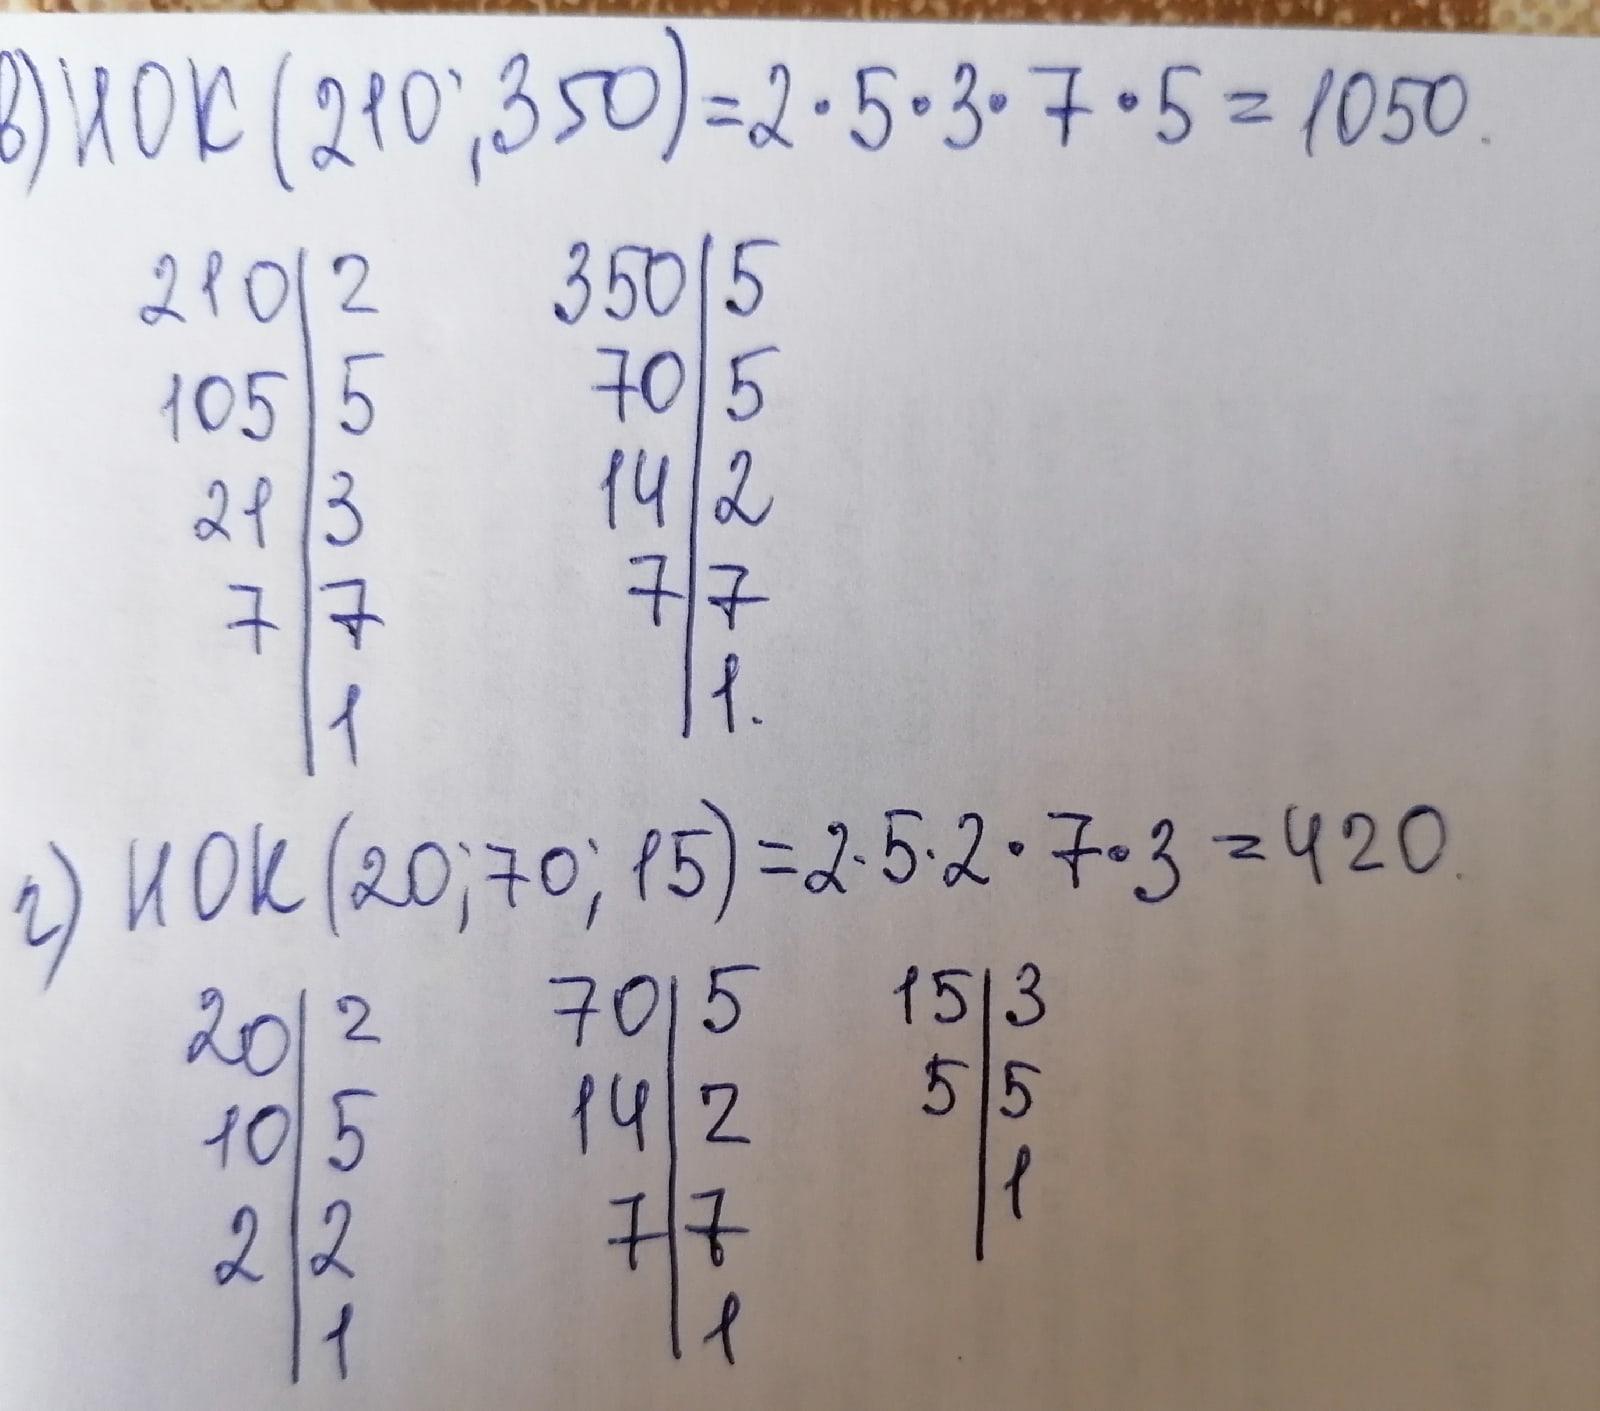 в) НОК (210; 350) = 2 · 5 · 3 · 7 · 5 = 1050.
210 | 2   350 | 5
105 | 5   70 | 5
21 | 3   14 | 2
7 | 7   7 | 7
| 1   | 1.
г) НОК (20; 70; 15) = 2 · 5 · 2 · 7 · 3 = 420.
20 | 2   70 | 5   15 | 3
10 | 5   14 | 2   5 | 5
2 | 2   7 | 7   | 1
| 1   | 1